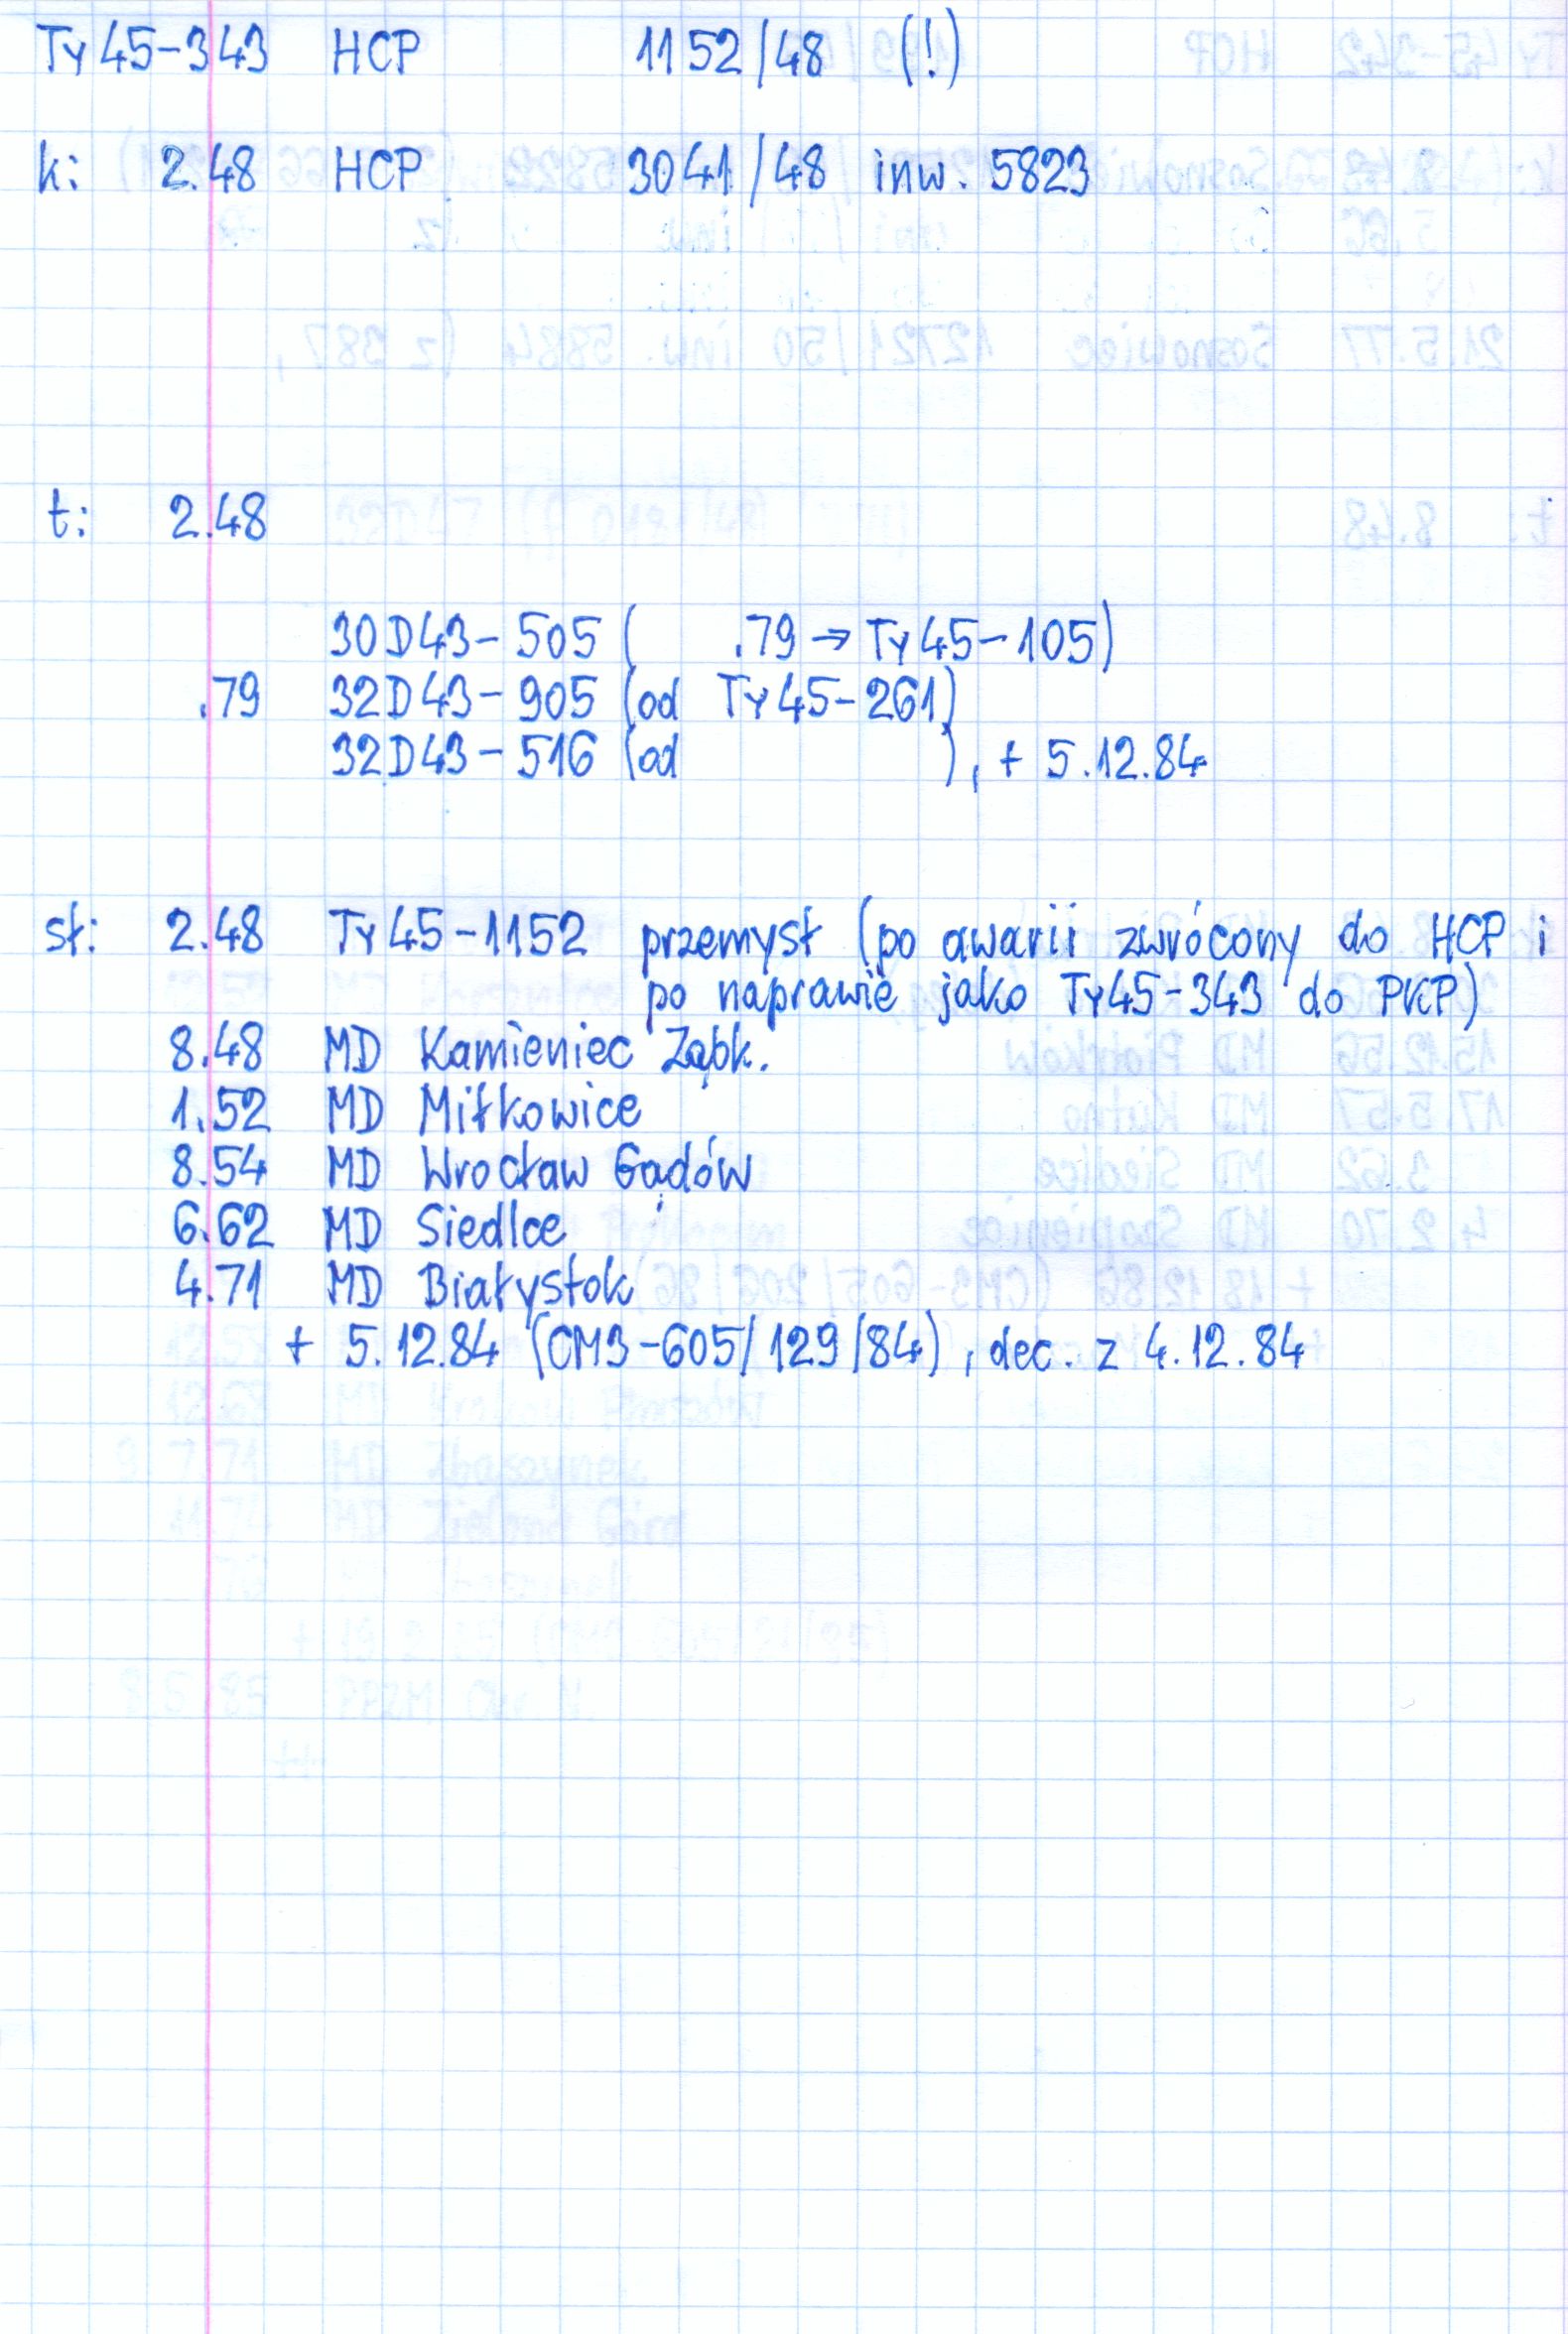 Ty45-343 HCP 1152/48 (!)
k: 2.48 HCP 3041/48 inw. 5823
t: 2.48
30D43-505 ( .79 → Ty45-105)
.79 32D43-905 (od Ty45-261)
32D43-516 (od ), + 5.12.84
st: 2.48 Ty45-1152 przemysł (po awarii zwrócony do HCP i
po naprawie jako Ty45-343 do PKP)
8.48 MD Kamieniec Ząbk.
1.52 MD Miłkowice
8.54 MD Wrocław Gądów
6.62 MD Siedlce
4.71 MD Białystok
+ 5.12.84 (CM3-605/129/84), dec. z 4.12.84